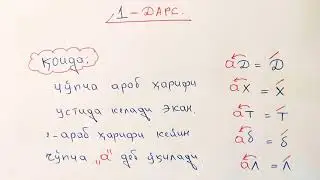 1-ДАРС.
Қоида:
чўпча араб ҳарифи
устида келади экан.
-араб ҳарифи кейин
чўпча „а" деб ўқилади
аД = Д
аХ = Х
аТ = Т
аб = б
аЛ = Л